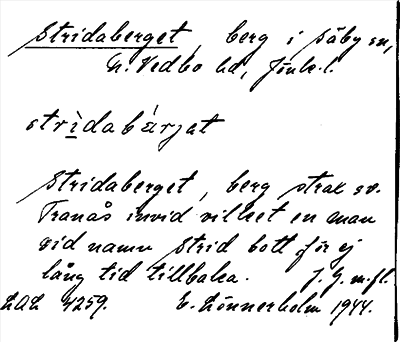 Stridaberget, berg i Säby sn,
N. Vedbo hd, Jönk. l.
strìdabárjat
Stridaberget, berg strax sv.
Tranås invid vilket en man
vid namn Strid bott för ej
lång tid tillbaka. J. G. m.fl.
LAL 4259. E. Lönnerholm 1944.